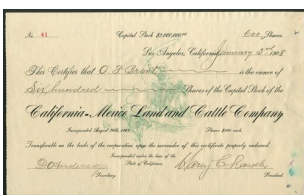 No 41 Capital Stock $3,000,000.00 600 Shares
Los Angeles, California, January 2nd 1908
This Certifies that O. F. Brant is the owner of
Six hundred Shares of the Capital Stock of the
California-Mexico Land and Cattle Company
Incorporated August 1902 Shares $100 each
Transferable on the books of the corporation upon the surrender of this certificate properly endorsed.
Incorporated under the laws of the
State of California
Secretary President